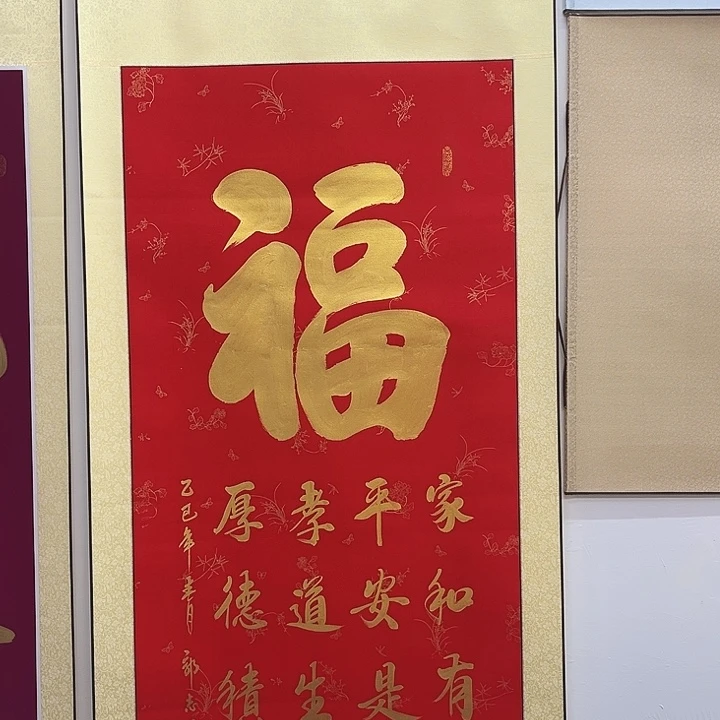 福
家和有
平安是
孝道生
厚德積
乙巳年